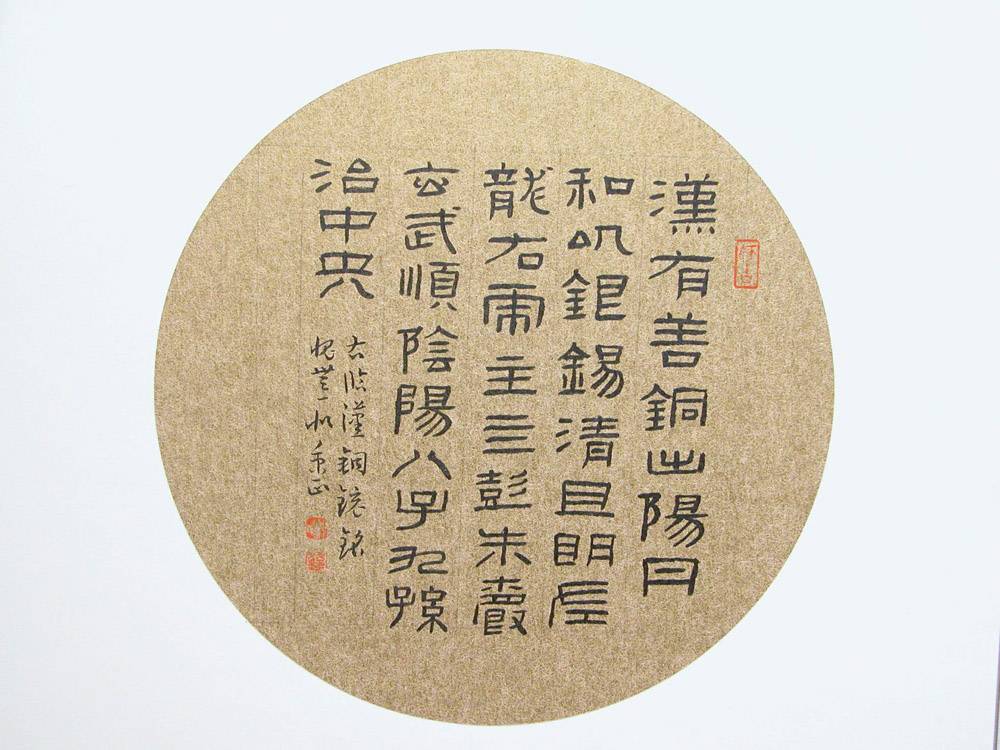 漢有善銅出陽丹
和以銀錫清且明左
龍右虎主三彭朱爵
玄武順陰陽八子九孫
治中央
右臨漢銅鏡銘
秉正